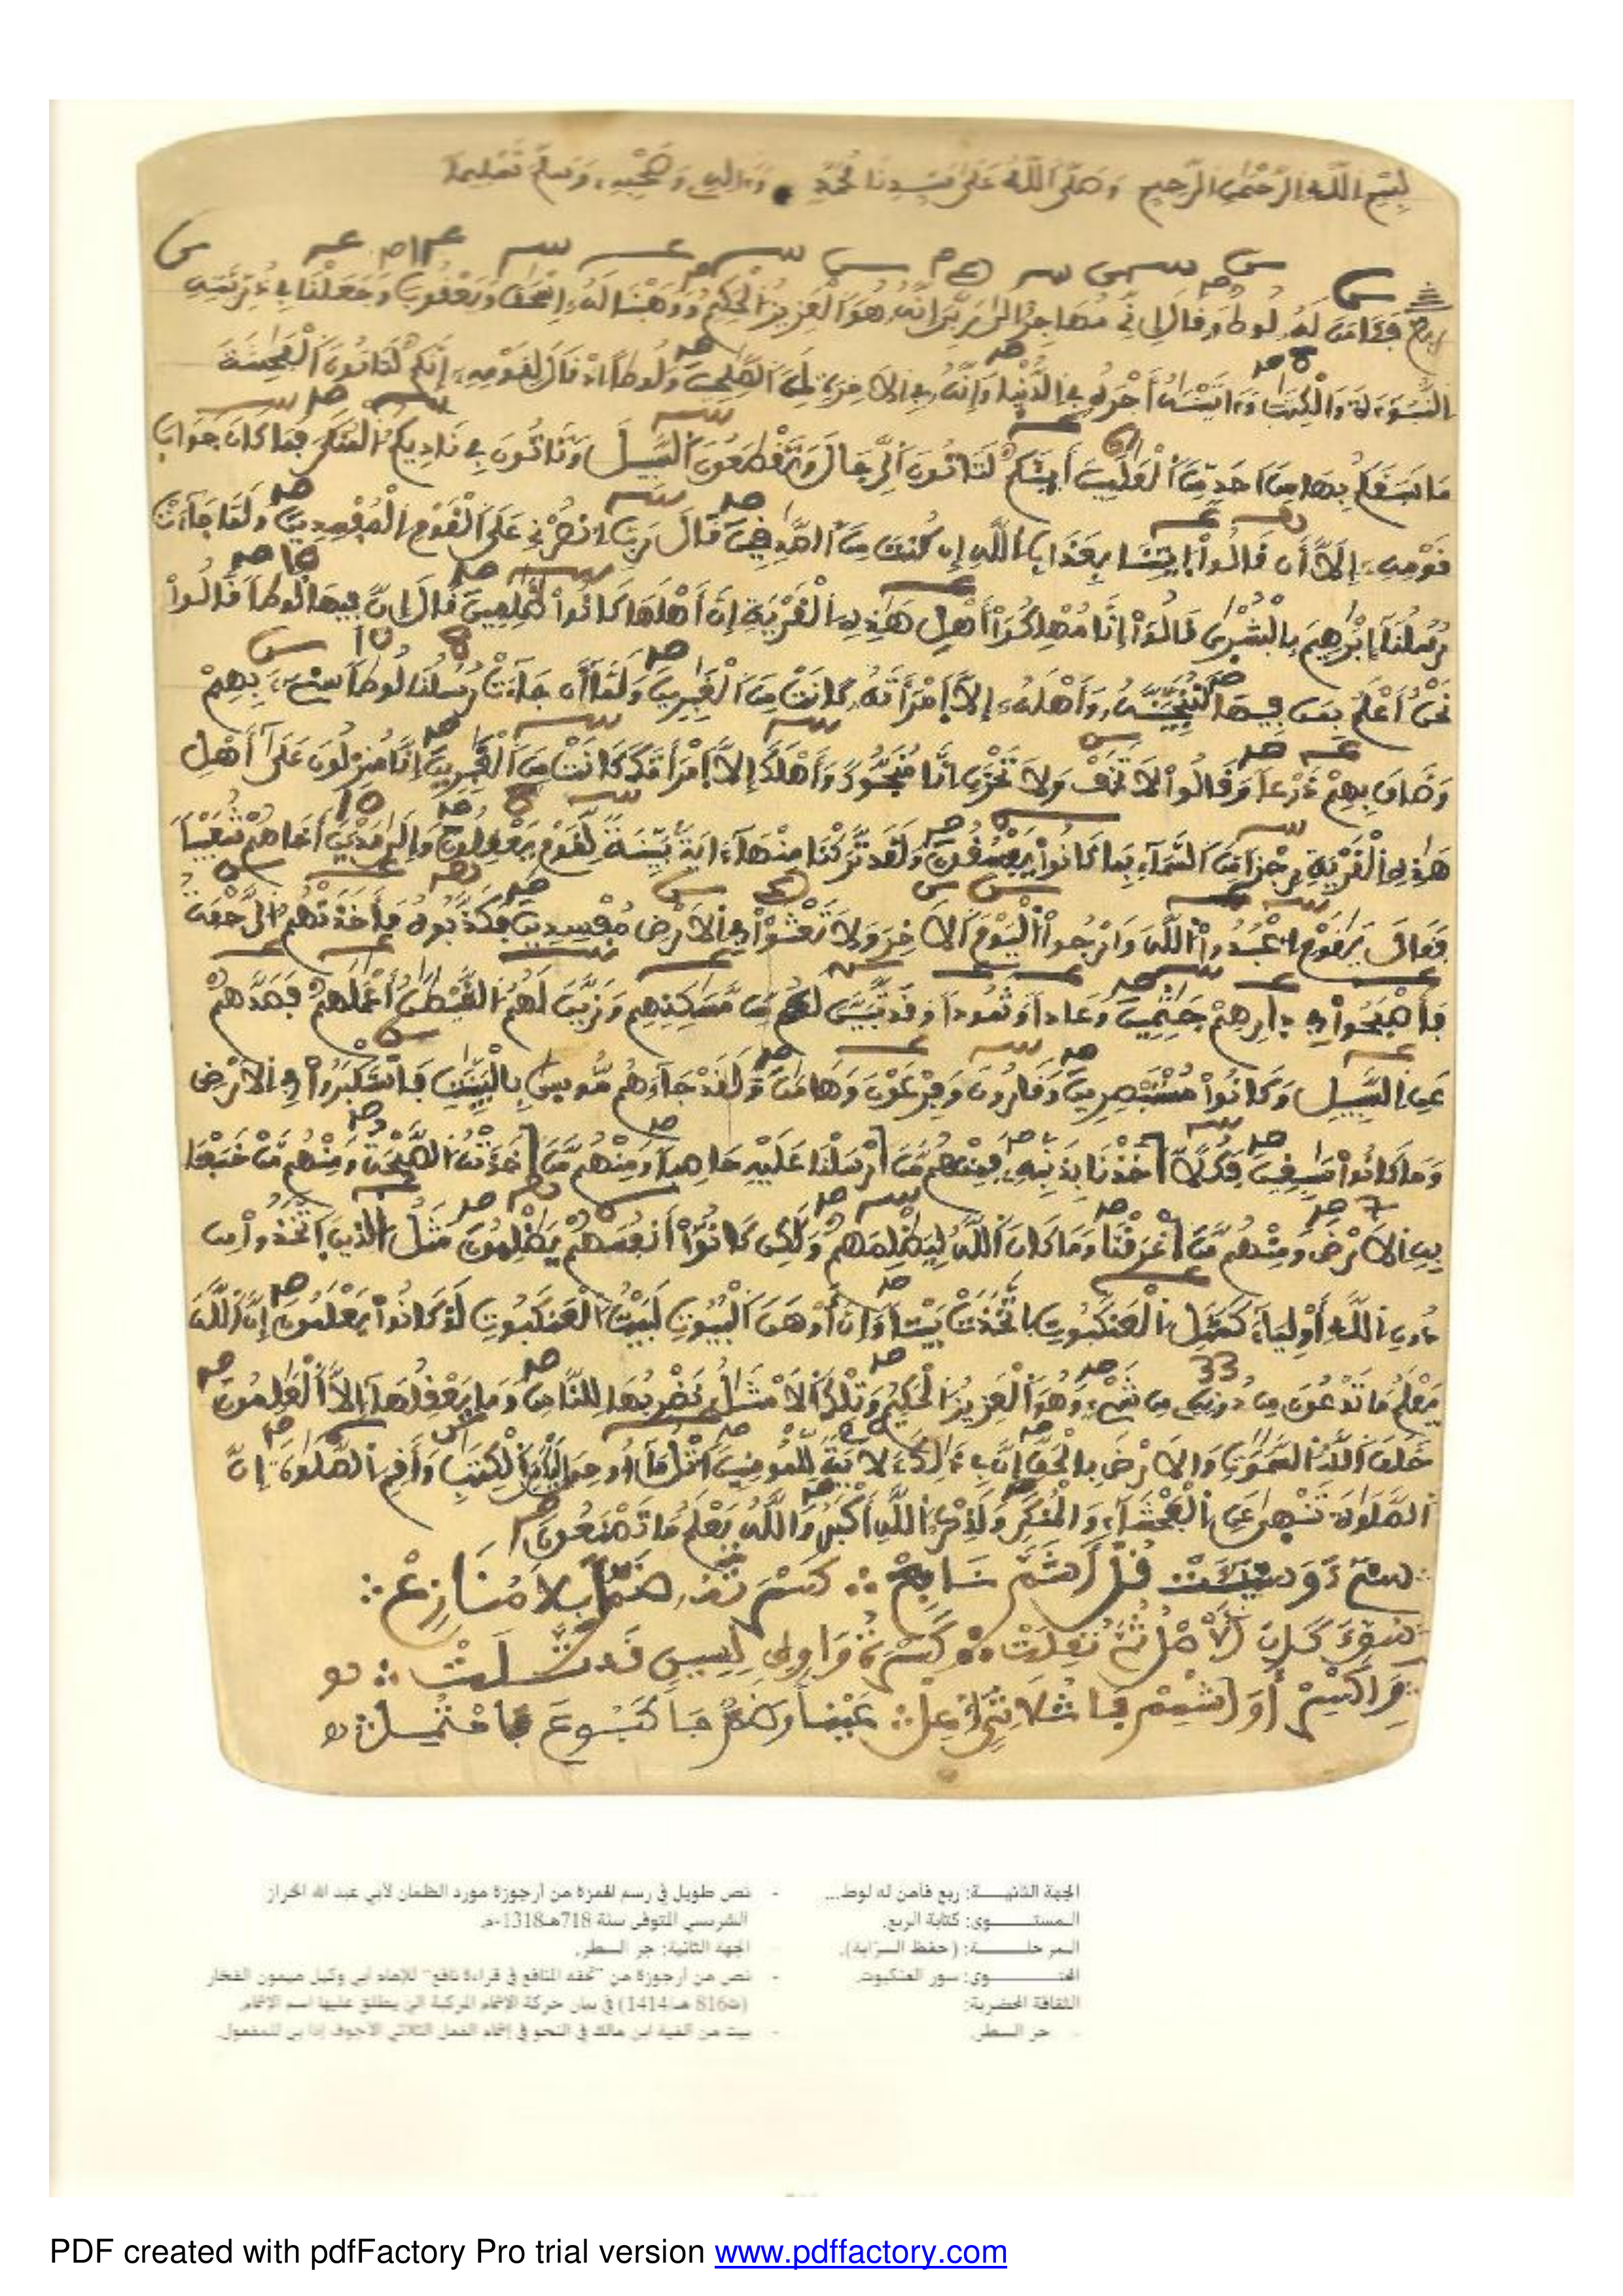 بسم الله الرحمن الرحيم وصلى الله على سيدنا محمد وءاله وصحبه وسلم تسليما
ربع فَـَٔامَنَ لَهُۥ لُوطٌ وَقَالَ إِنِّي مُهَاجِرٌ اِلَىٰ رَبِّيَ إِنَّهُۥ هُوَ اَلْعَزِيزُ اُلْحَكِيمُ وَوَهَبْنَا لَهُۥ إِسْحَٰقَ وَيَعْقُوبَ وَجَعَلْنَا فِي ذُرِّيَّتِهِ
اِلنُّبُوَٓءَةَ وَالْكِتَٰبَ وَءَاتَيْنَٰهُ أَجْرَهُۥ فِي اِلدُّنْيَا وَإِنَّهُۥ فِي اِلَاخِرَةِ لَمِنَ اَلصَّٰلِحِينَ وَلُوطاً اِذْ قَالَ لِقَوْمِهِۦٓ إِنَّكُمْ لَتَاتُونَ اَلْفَٰحِشَةَ
مَا سَبَقَكُم بِهَا مِنَ اَحَدٍ مِّنَ اَلْعَٰلَمِينَ أَئِنَّكُمْ لَتَاتُونَ اَلرِّجَالَ وَتَقْطَعُونَ اَلسَّبِيلَ وَتَاتُونَ فِي نَادِيكُمُ اُلْمُنكَرَ فَمَا كَانَ جَوَابَ
قَوْمِهِۦٓ إِلَّآ أَن قَالُواْ اُيتِنَا بِعَذَابِ اِللَّهِ إِن كُنتَ مِنَ اَلصَّٰدِقِينَ قَالَ رَبِّ اِنصُرْنِي عَلَى اَلْقَوْمِ اِلْمُفْسِدِينَ وَلَمَّا جَآءَتْ
رُسُلُنَآ إِبْرَٰهِيمَ بِالْبُشْرَىٰ قَالُوٓاْ إِنَّا مُهْلِكُوٓاْ أَهْلِ هَٰذِهِ اِلْقَرْيَةِ إِنَّ أَهْلَهَا كَانُواْ ظَٰلِمِينَ قَالَ إِنَّ فِيهَا لُوطاً قَالُواْ
نَحْنُ أَعْلَمُ بِمَن فِيهَا لَنُنَجِّيَنَّهُۥ وَأَهْلَهُۥٓ إِلَّا اَمْرَأَتَهُۥ كَانَتْ مِنَ اَلْغَٰبِرِينَ وَلَمَّآ أَن جَآءَتْ رُسُلُنَا لُوطاً سِيٓءَ بِهِمْ
وَضَاقَ بِهِمْ ذَرْعاً وَقَالُواْ لَا تَخَفْ وَلَا تَحْزَنِ اِنَّا مُنَجُّوكَ وَأَهْلَكَ إِلَّا اَمْرَأَتَكَ كَانَتْ مِنَ اَلْغَٰبِرِينَ إِنَّا مُنزِلُونَ عَلَىٰٓ أَهْلِ
هَٰذِهِ اِلْقَرْيَةِ رِجْزاً مِّنَ اَلسَّمَآءِ بِمَا كَانُواْ يَفْسُقُونَ وَلَقَد تَّرَكْنَا مِنْهَآ ءَايَةَۢ بَيِّنَةً لِّقَوْمٍ يَعْقِلُونَ وَإِلَىٰ مَدْيَنَ أَخَاهُمْ شُعَيْباً
فَقَالَ يَٰقَوْمِ اِعْبُدُواْ اُللَّهَ وَارْجُواْ اُلْيَوْمَ اَلَاخِرَ وَلَا تَعْثَوْاْ فِي اِلَارْضِ مُفْسِدِينَ فَكَذَّبُوهُ فَأَخَذَتْهُمُ اُلرَّجْفَةُ
فَأَصْبَحُواْ فِي دِارِهِمْ جَٰثِمِينَ وَعَاداً وَثَمُوداً وَقَد تَّبَيَّنَ لَكُم مِّن مَّسَٰكِنِهِمْ وَزَيَّنَ لَهُمُ اُلشَّيْطَٰنُ أَعْمَٰلَهُمْ فَصَدَّهُمْ
عَنِ اِلسَّبِيلِ وَكَانُواْ مُسْتَبْصِرِينَ وَقَٰرُونَ وَفِرْعَوْنَ وَهَٰمَٰنَ وَلَقَدْ جَآءَهُم مُّوسَىٰ بِالْبَيِّنَٰتِ فَاسْتَكْبَرُواْ فِي اِلَارْضِ
وَمَا كَانُواْ سَٰبِقِينَ فَكُلّاً اَخَذْنَا بِذَنۢبِهِۦ فَمِنْهُم مَّنَ اَرْسَلْنَا عَلَيْهِ حَاصِباً وَمِنْهُم مَّنَ اَخَذَتْهُ اُلصَّيْحَةُ وَمِنْهُم مَّنْ خَسَفْنَا
بِهِ اِلَارْضَ وَمِنْهُم مَّنَ اَغْرَقْنَا وَمَا كَانَ اَللَّهُ لِيَظْلِمَهُمْ وَلَٰكِن كَانُوٓاْ أَنفُسَهُمْ يَظْلِمُونَ مَثَلُ اُلذِينَ اَتَّخَذُواْ مِن
دُونِ اِللَّهِ أَوْلِيَآءَ كَمَثَلِ اِلْعَنكَبُوتِ اِتَّخَذَتْ بَيْتاً وَإِنَّ أَوْهَنَ اَلْبُيُوتِ لَبَيْتُ اُلْعَنكَبُوتِ لَوْ كَانُواْ يَعْلَمُونَ إِنَّ اَللَّهَ
يَعْلَمُ مَا تَدْعُونَ مِن دُونِهِۦ مِن شَيْءٍ وَهُوَ اَلْعَزِيزُ اُلْحَكِيمُ وَتِلْكَ اَلَامْثَٰلُ نَضْرِبُهَا لِلنَّاسِ وَمَا يَعْقِلُهَآ إِلَّا اَلْعَٰلِمُونَ
خَلَقَ اَللَّهُ اُلسَّمَٰوَٰتِ وَالَارْضَ بِالْحَقِّ إِنَّ فِي ذَٰلِكَ ءَلَايَةً لِّلْمُومِنِينَ اَتْلُ مَآ أُوحِيَ إِلَيْكَ مِنَ اَلْكِتَٰبِ وَأَقِمِ اِلصَّلَوٰةَ إِنَّ
اَلصَّلَوٰةَ تَنْهَىٰ عَنِ اِلْفَحْشَآءِ وَالْمُنكَرِ وَلَذِكْرُ اُللَّهِ أَكْبَرُ وَاللَّهُ يَعْلَمُ مَا تَصْنَعُونَ
سيٓء وسيٓئت قل أشم نافع كسرته ضما بلا منازع
الأصل ثم نقلت
واكسر أو اشمم فا ثلاثي أعل عينا وضم جا كبوع فاحتمل
الجهة الثانيــــة: ربع فآمن له لوط...
المستـــــوى: كتابة الربع.
المرحلــــة: (حفظ السرّاية).
المحتـــــوى: سور العنكبوت.
الثقافة الحضرية:
- جر السطر.
- نص طويل في رسم الهمزة من أرجوزة مورد الظمان لأبي عبد الله الخراز
الشريسي المتوفى سنة 718هـ-1318م.
الجهة الثانية: جر السطر.
- نص من أرجوزة من "تحفة المنافع في قراءة نافع" للإمام أبي وكيل ميمون الفخار
(ت816هـ/1414) في بيان حركة الإشمام المركبة التي يطلق عليها اسم الإشمام.
- بيت من ألفية ابن مالك في النحو في إشمام الفعل الثلاثي الأجوف إذا بني للمفعول.
PDF created with pdfFactory Pro trial version www.pdffactory.com